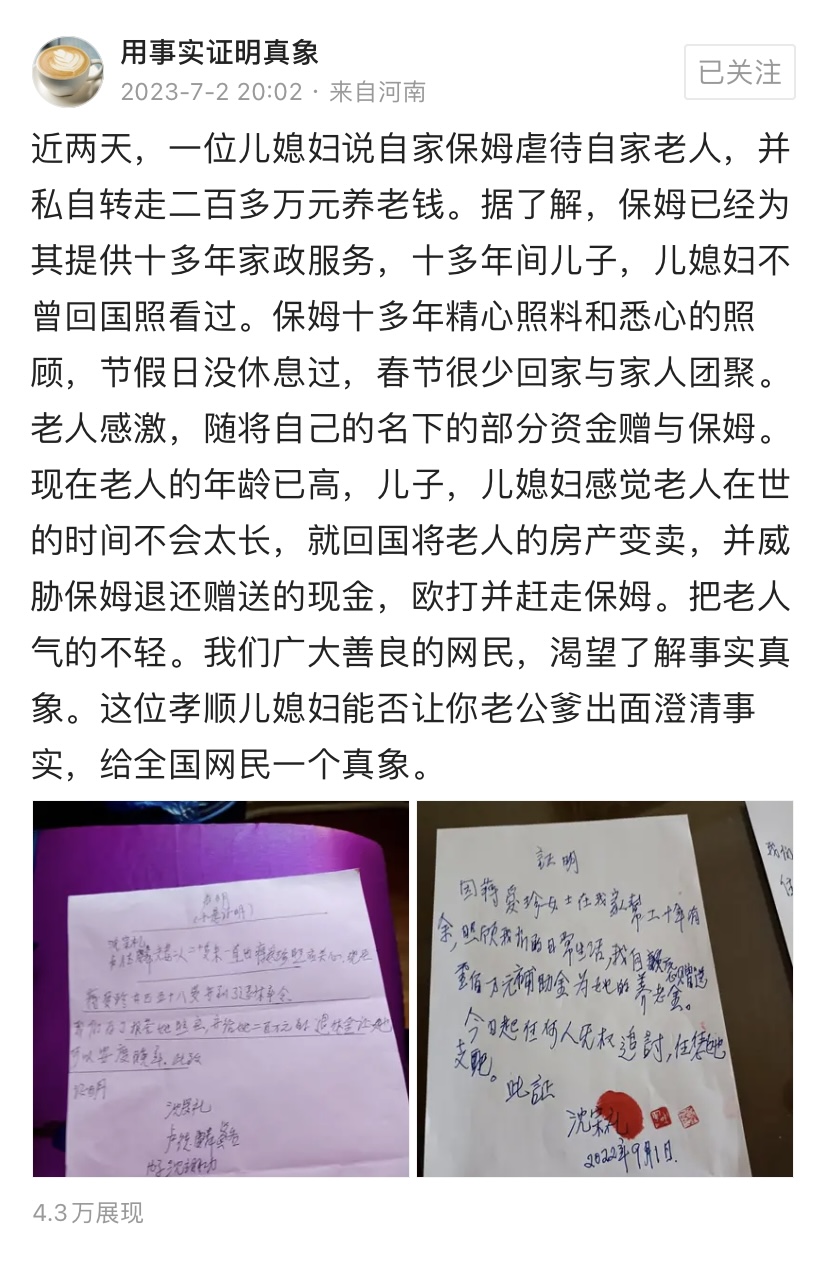 用事实证明真象
2023-7-2 20:02 · 来自河南
已关注
近两天，一位儿媳妇说自家保姆虐待自家老人，并
私自转走二百多万元养老钱。据了解，保姆已经为
其提供十多年家政服务，十多年间儿子，儿媳妇不
曾回国照看过。保姆十多年精心照料和悉心的照
顾，节假日没休息过，春节很少回家与家人团聚。
老人感激，随将自己的名下的部分资金赠与保姆。
现在老人的年龄已高，儿子，儿媳妇感觉老人在世
的时间不会太长，就回国将老人的房产变卖，并威
胁保姆退还赠送的现金，欧打并赶走保姆。把老人
气的不轻。我们广大善良的网民，渴望了解事实真
象。这位孝顺儿媳妇能否让你老公爹出面澄清事
实，给全国网民一个真象。
可以安度晚年
证明
沈宗礼
証明
因蒋爱珍女士在我家帮工十年有
余，照顾我们的日常生活，我自愿赠送
壹佰万元補助金为她的养老金。
今日起任何人无权追討，任凭她
支配。
此証
沈宗礼
2022年9月1日.
我们
4.3万展现